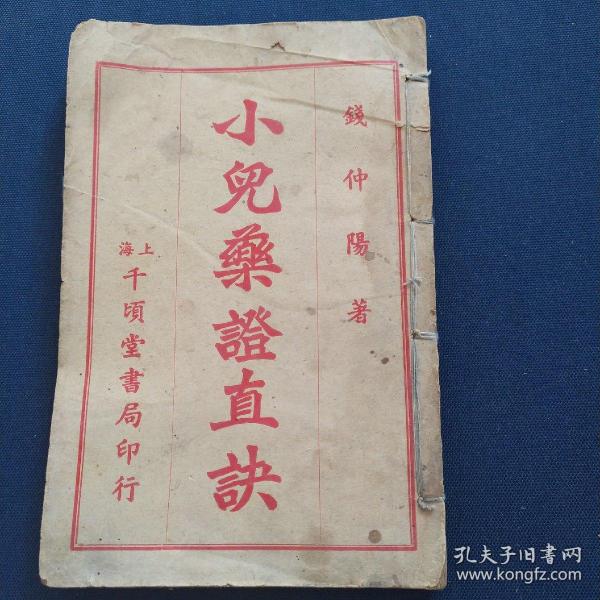 錢仲陽著
小兒藥證直訣
上海
千頃堂書局印行
孔夫子旧書网
www.kongfz.com